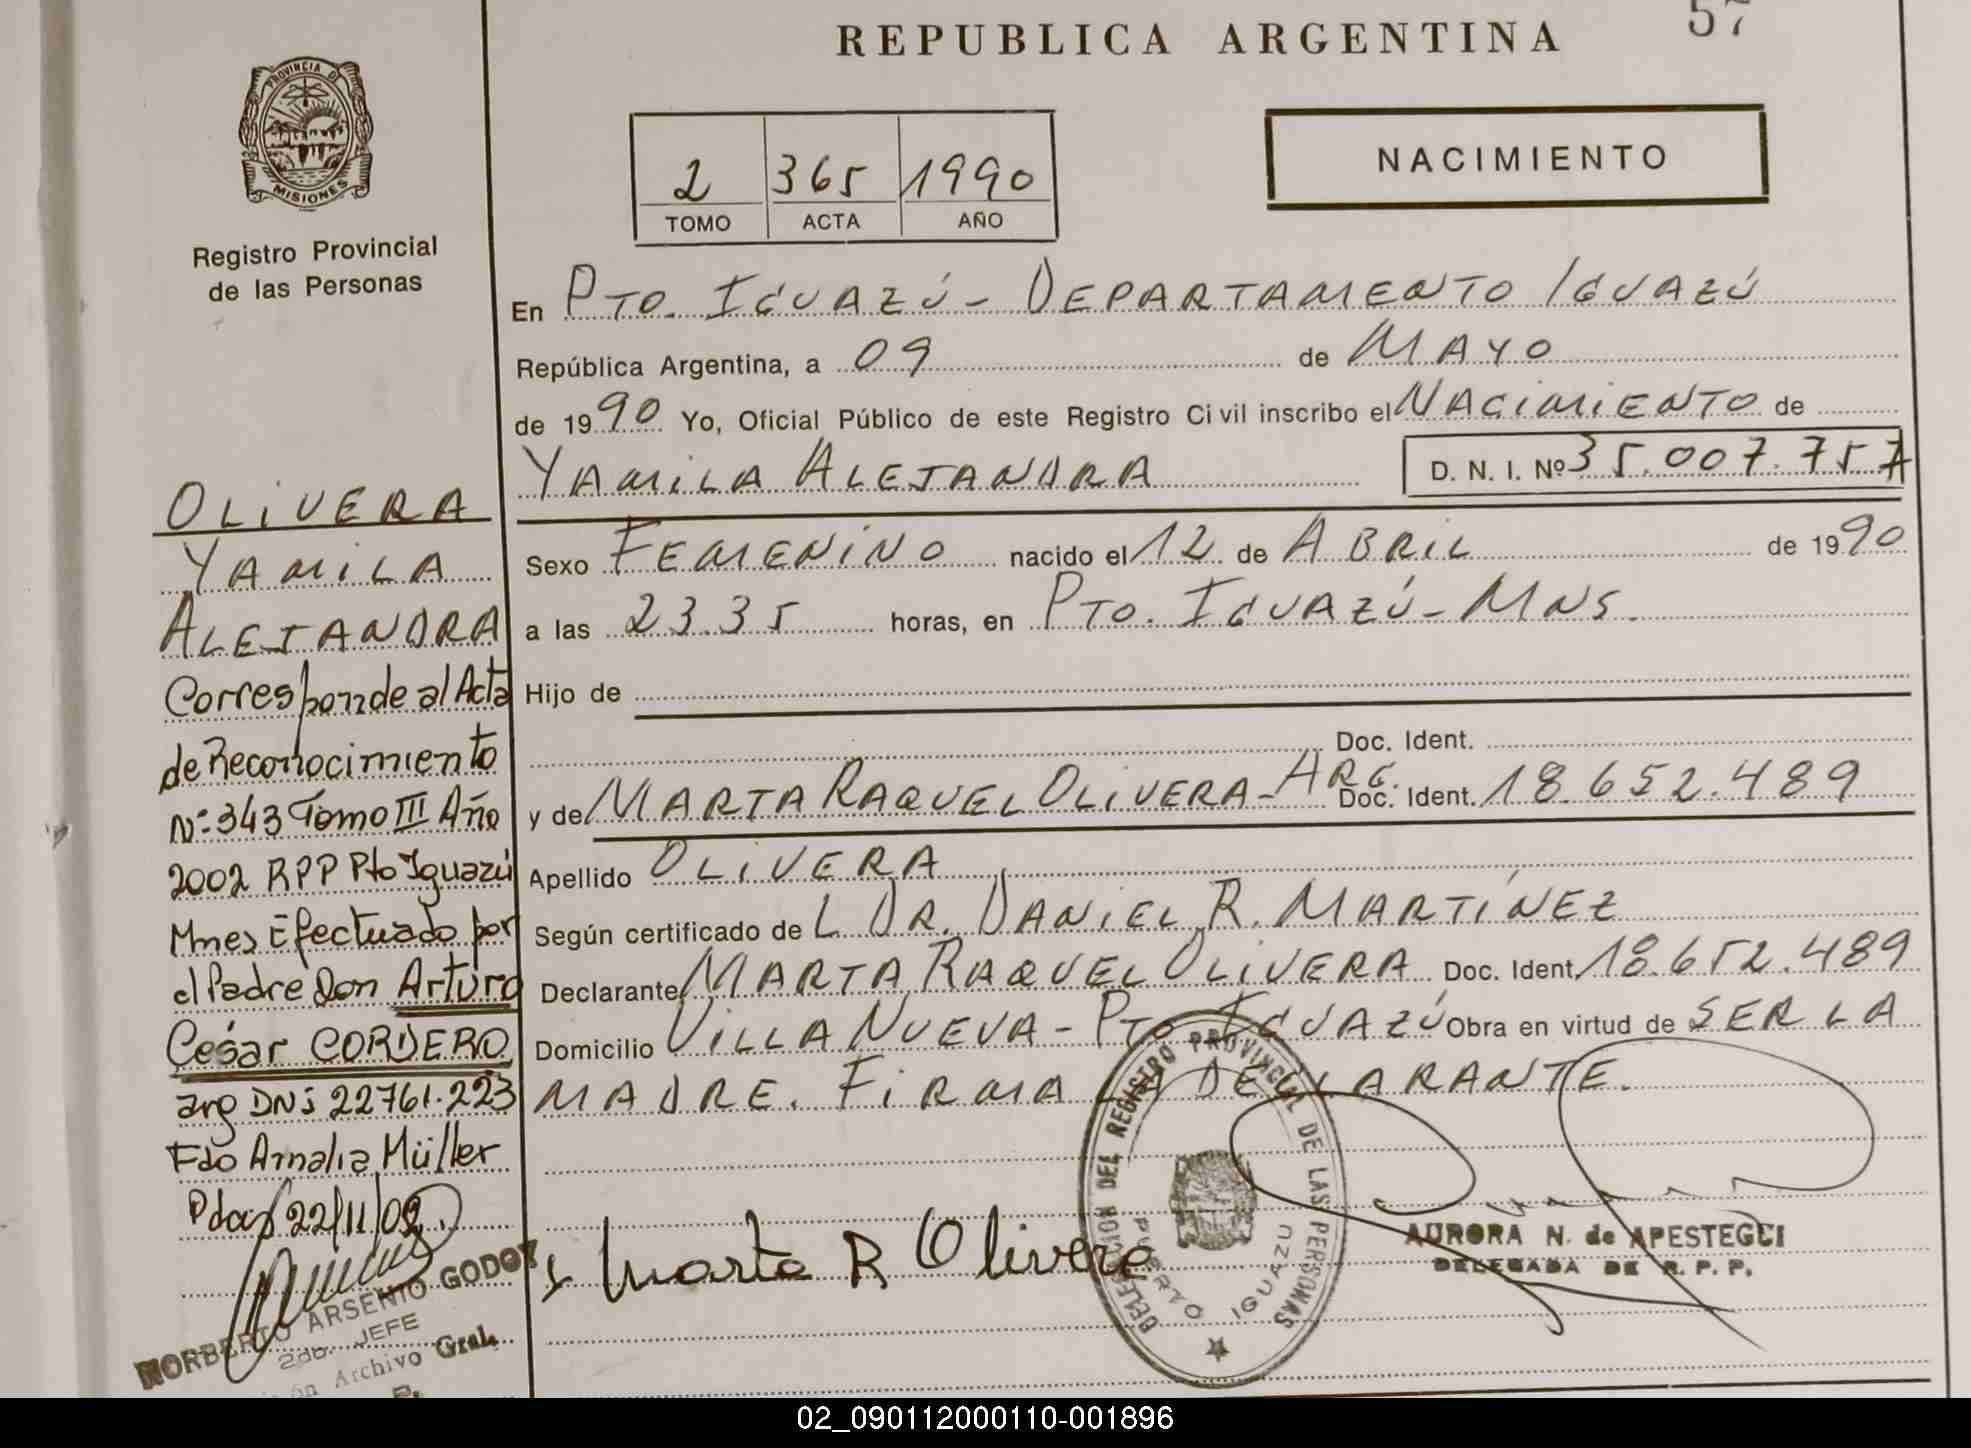 REPUBLICA ARGENTINA
57
PROVINCIA DE
MISIONES
Registro Provincial
de las Personas
2 365 1990
TOMO ACTA AÑO
NACIMIENTO
En PTO. IGUAZÚ - DEPARTAMENTO IGUAZÚ
República Argentina, a 09 de MAYO
de 1990 Yo, Oficial Público de este Registro Civil inscribo el NACIMIENTO de
YAMILA ALEJANDRA D. N. I. Nº 35.007.757
Sexo FEMENINO nacido el 12 de ABRIL de 1990
a las 23.35 horas, en PTO. IGUAZÚ - MNS.
Hijo de
Doc. Ident.
y de MARTA RAQUEL OLIVERA - ARG. Doc. Ident. 18.652.489
Apellido OLIVERA
Según certificado de L DR. DANIEL R. MARTÍNEZ
Declarante MARTA RAQUEL OLIVERA Doc. Ident. 18.652.489
Domicilio VILLA NUEVA - PTO IGUAZÚ Obra en virtud de SER LA
MADRE. FIRMA LA DECLARANTE.
Marta R Olivera
DELEGACION DEL REGISTRO PROVINCIAL DE LAS PERSONAS
PUERTO IGUAZU
AURORA N. de APESTEGUI
DELEGADA DE R. P. P.
OLIVERA
YAMILA
ALEJANDRA
Corresponde al Acta
de Reconocimiento
Nº 343 Tomo III Año
2002 RPP Pto Iguazú
Mnes Efectuado por
el Padre Don Arturo
César CORDERO
arg DNi 22761.223
Fdo Amalia Müller
Pdas 22/11/02
NORBERTO ARSENIO GODOY
2do. JEFE
Archivo Gral.
02_090112000110-001896